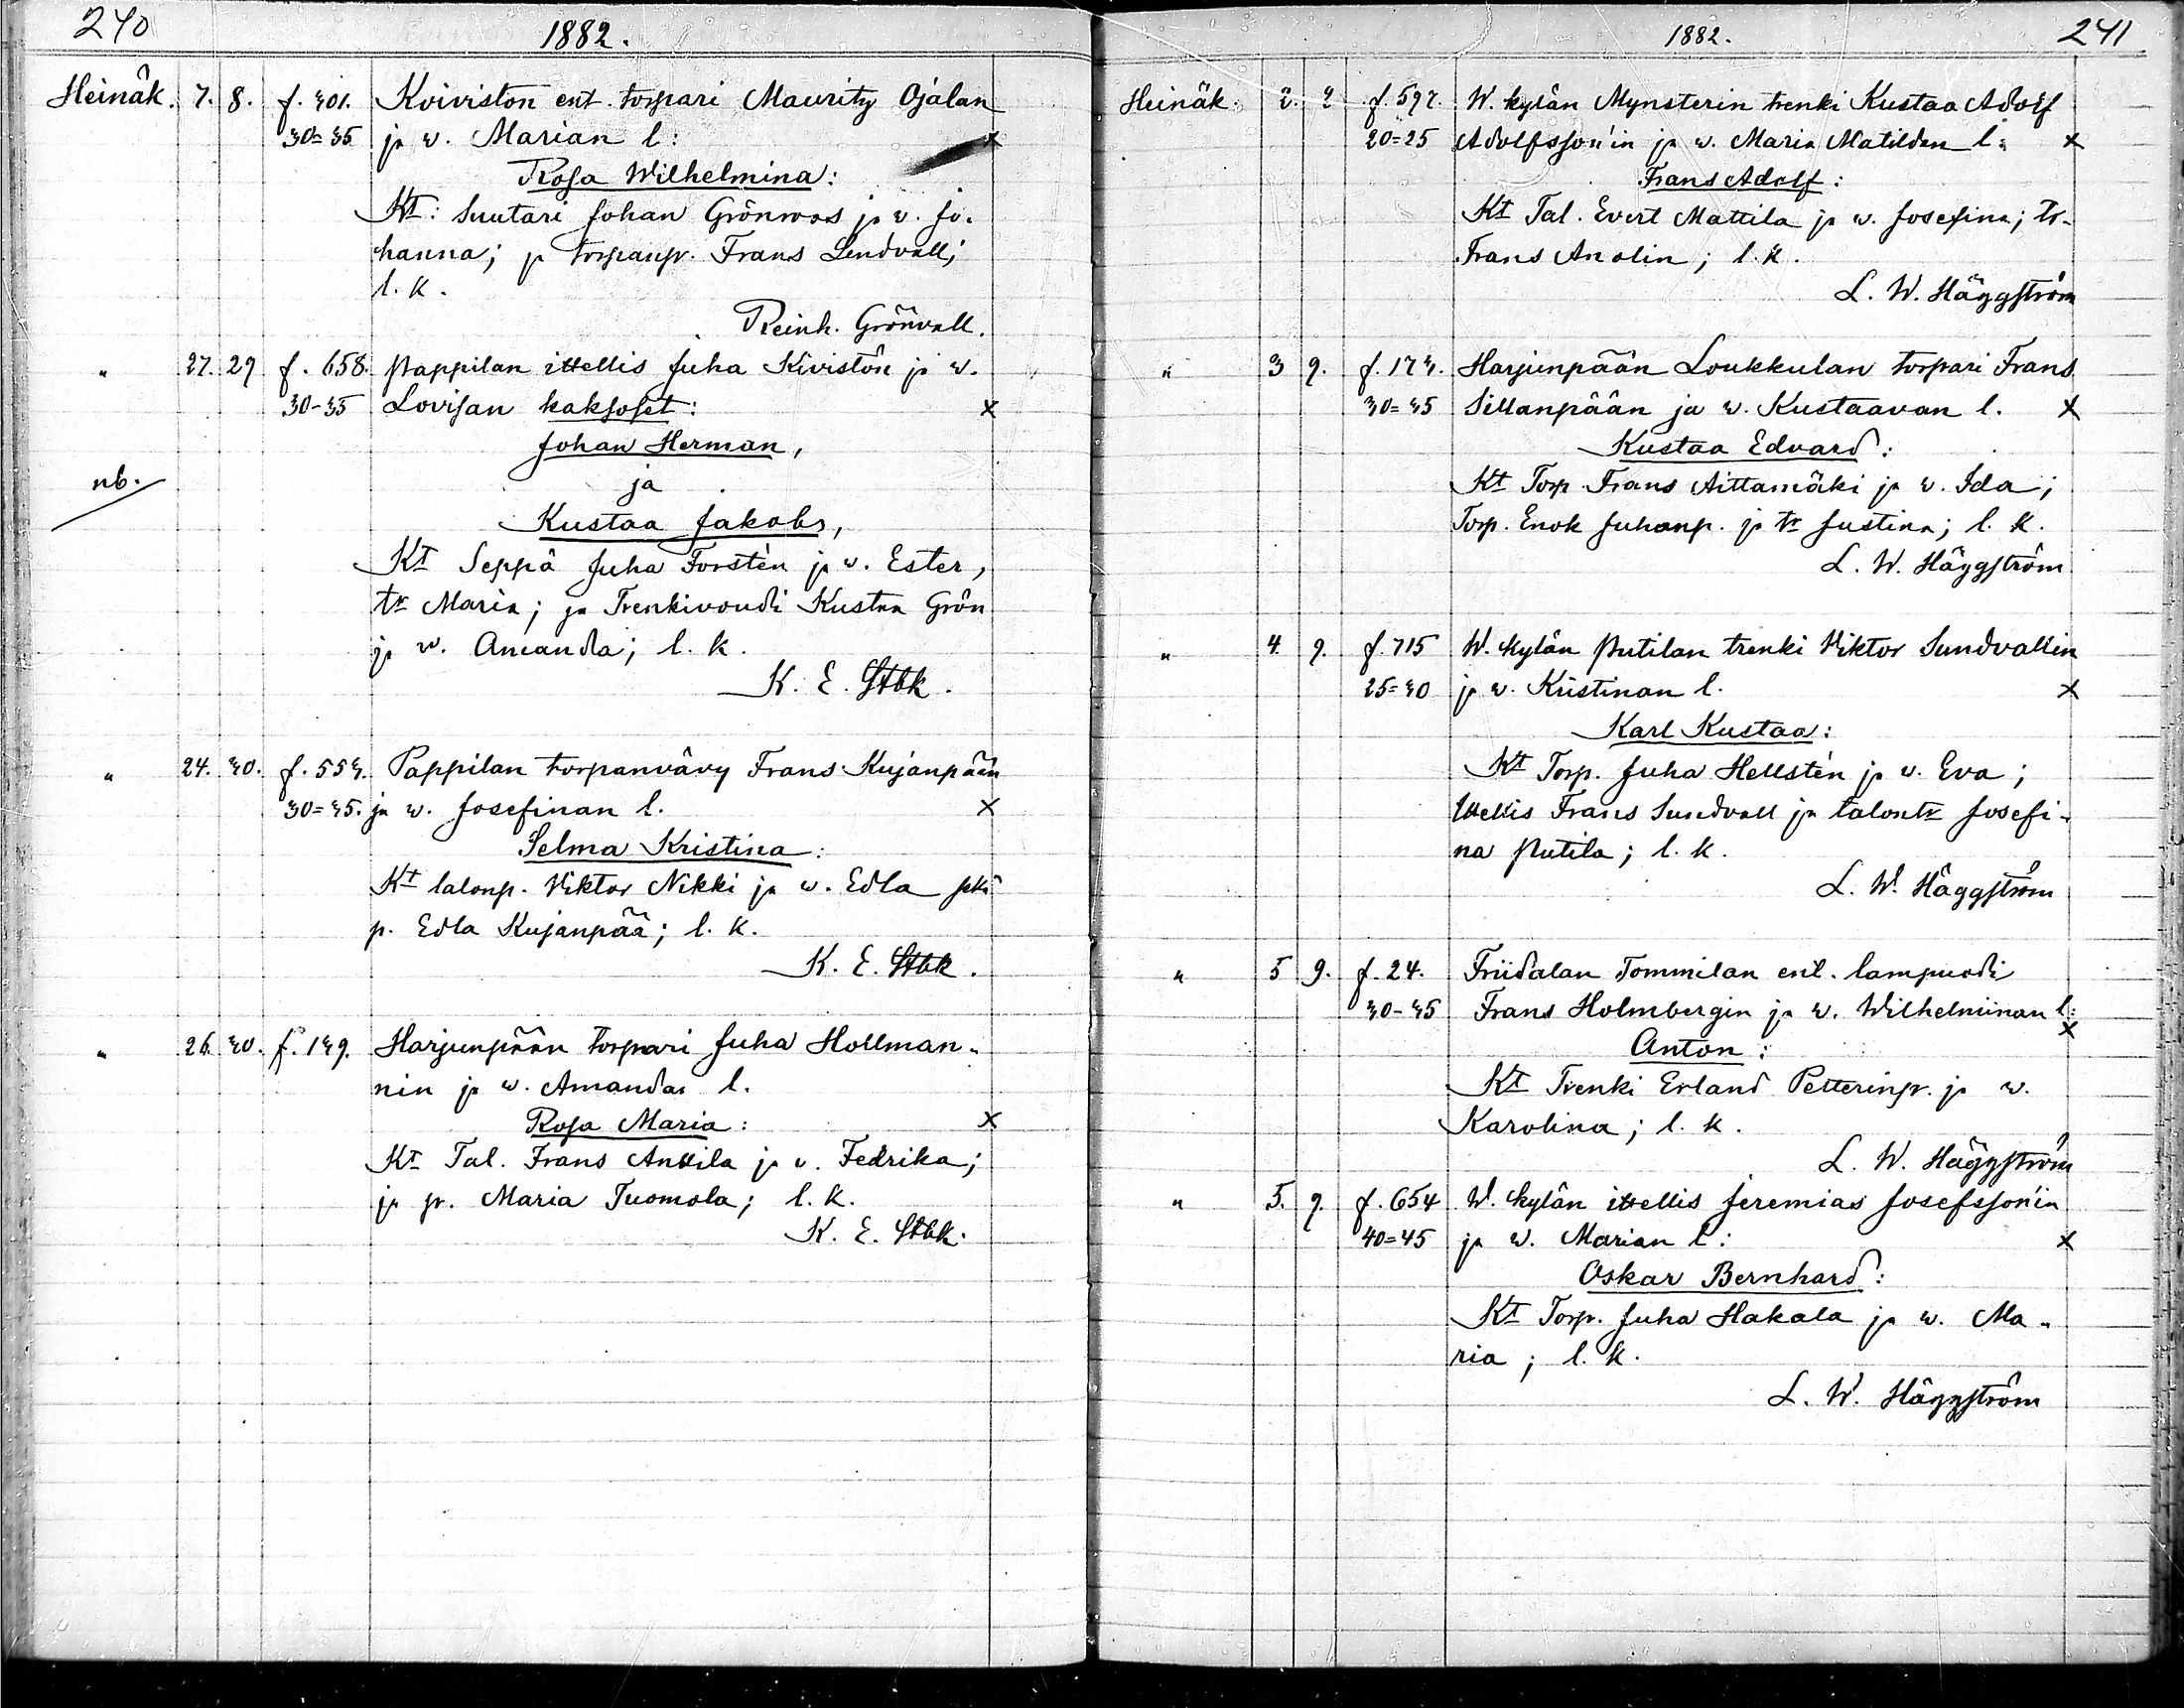 240
1882.
Heinäk. 7. 8. f. 301. Koiviston ent. torpari Mauritz Ojalan
30=35 ja w. Marian l: x
Rosa Wilhelmina:
Kt: Suutari Johan Grönroos ja w. Jo-
hanna; ja torpanp. Frans Lindvall;
l. k.
Reinh. Grönvall.
" 27. 29 f. 658. Pappilan ittellis Juha Kivistön ja w.
30-35 Lovisan kaksoset: x
Johan Herman,
nb. ja
Kustaa Jakobs,
Kt Seppä Juha Forstén ja w. Ester,
tr Maria; ja Trenkivouti Kustaa Grön
ja w. Amanda; l. k.
K. E. Stbk.
" 24. 30. f. 553. Pappilan torpanvävy Frans Kujanpään
30=35. ja w. Josefinan l. x
Selma Kristina:
Kt talonp. Viktor Nikki ja w. Edla
p. Edla Kujanpää; l. k.
K. E. Stbk.
" 26. 30. f. 139. Harjunpään torpari Juha Hollman-
nin ja w. Amandan l.
Rosa Maria: x
Kt Tal. Frans Anttila ja w. Fedrika;
ja p. Maria Tuomola; l. k.
K. E. Stbk.
1882. 241
Heinäk. 2. 2 f. 597. W. kylän Mynsterin trenki Kustaa Adolf
20=25 Adolfsson'in ja w. Maria Matildan l: x
Frans Adolf:
Kt Tal. Evert Mattila ja w. Josefina; to-
Frans Anolin; l. k.
L. W. Häggström
" 3 9. f. 173. Harjunpään Loukkulan torpari Frans
30=35 Sillanpään ja w. Kustaavan l. x
Kustaa Edvard:
Kt Torp. Frans Aittamäki ja w. Ida;
Torp. Enok Juhanp. ja tr Justina; l. k.
L. W. Häggström
" 4. 9. f. 715 W. kylän Putilan trenki Viktor Sundvallin
25=30 ja w. Kristinan l. x
Karl Kustaa:
Kt Torp. Juha Hellstén ja w. Eva;
Ittellis Frans Sundvall ja talontr Josefi-
na Putila; l. k.
L. W. Häggström
" 5 9. f. 24. Friidalan Tommilan ent. lampuodi
30-35 Frans Holmbergin ja w. Wilhelmiinan l: x
Anton:
Kt Trenki Erland Petterinp. ja w.
Karolina; l. k.
L. W. Häggström
" 5. 9. f. 654 W. kylän ittellis Jeremias Josefsson'in
40=45 ja w. Marian l: x
Oskar Bernhard:
Kt Torp. Juha Hakala ja w. Ma-
ria; l. k.
L. W. Häggström